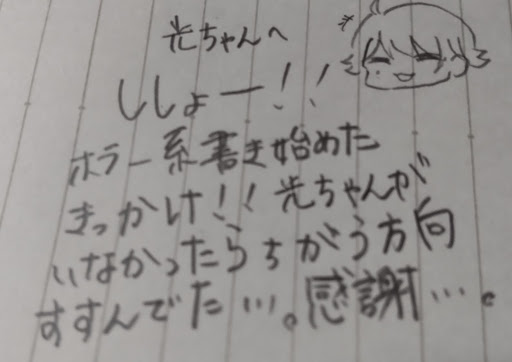 光ちゃんへ
ししょー!!
ホラー系書き始めた
きっかけ!!光ちゃんが
いなかったらちがう方向
すすんでた…。感謝…。